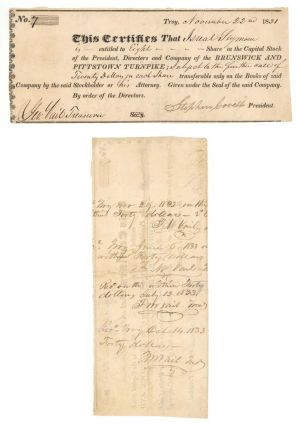 No. 7 Troy, November 22nd 1831
This Certifies That Israel Seymour
is entitled to Eight Share in the Capital Stock
of the President, Directors and Company of the BRUNSWICK AND
PITTSTOWN TURNPIKE; Subject to the further call of
Twenty Dollars on each Share transferable only on the Books of said
Company by the said Stockholder or his Attorney. Given under the Seal of the said Company.
By order of the Directors.
Geo Vail Treasurer Stephen Covell President.
Secry.
Troy Nov 29. 1832 on the
Forty dollars
Vail
Troy June 1833
within Forty dollars
Vail
Rec on the within Forty
dollars July 12. 1833
Vail
Troy Oct 14. 1833
Forty dollars
Vail